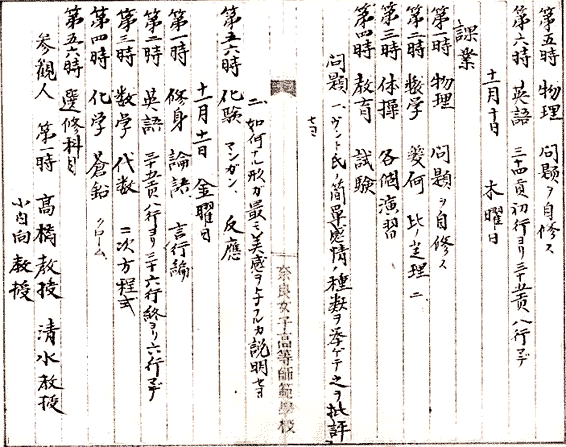 第五時 物理 問題ヲ自修ス
第六時 英語 三十四頁初行ヨリ三十五頁八行マデ
十一月十日 木曜日
課業
第一時 物理 問題ヲ自修ス
第二時 数学 幾何 比定理二
第三時 体操 各個演習
第四時 教育 試験
問題 一、ヴント氏ノ簡単感情ノ種数ヲ挙ゲテ之ヲ批評
セヨ
奈良女子高等師範學校
二、如何ナル形ガ最モ美感ヲ与フルカ説明セヨ
第五六時 化験 マンガン 反應
十一月十一日 金曜日
第一時 修身 論語 言行論
第二時 英語 三十五頁八行ヨリ三十六行終ヨリ六行マデ
第三時 数学 代数 二次方程式
第四時 化学 蒼鉛 クローム
第五六時 選修科目
参観人 第一時 高橋教授 清水教授
小内向教授